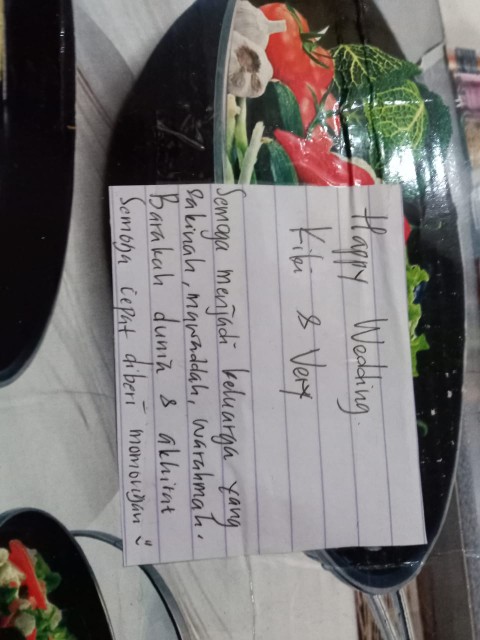 Happy Wedding.
Kiki & Very
Semoga menjadi keluarga yang
sakinah, mawaddah, warahmah.
Barakah dunia & akhirat
Semoga cepat diberi momongan :)